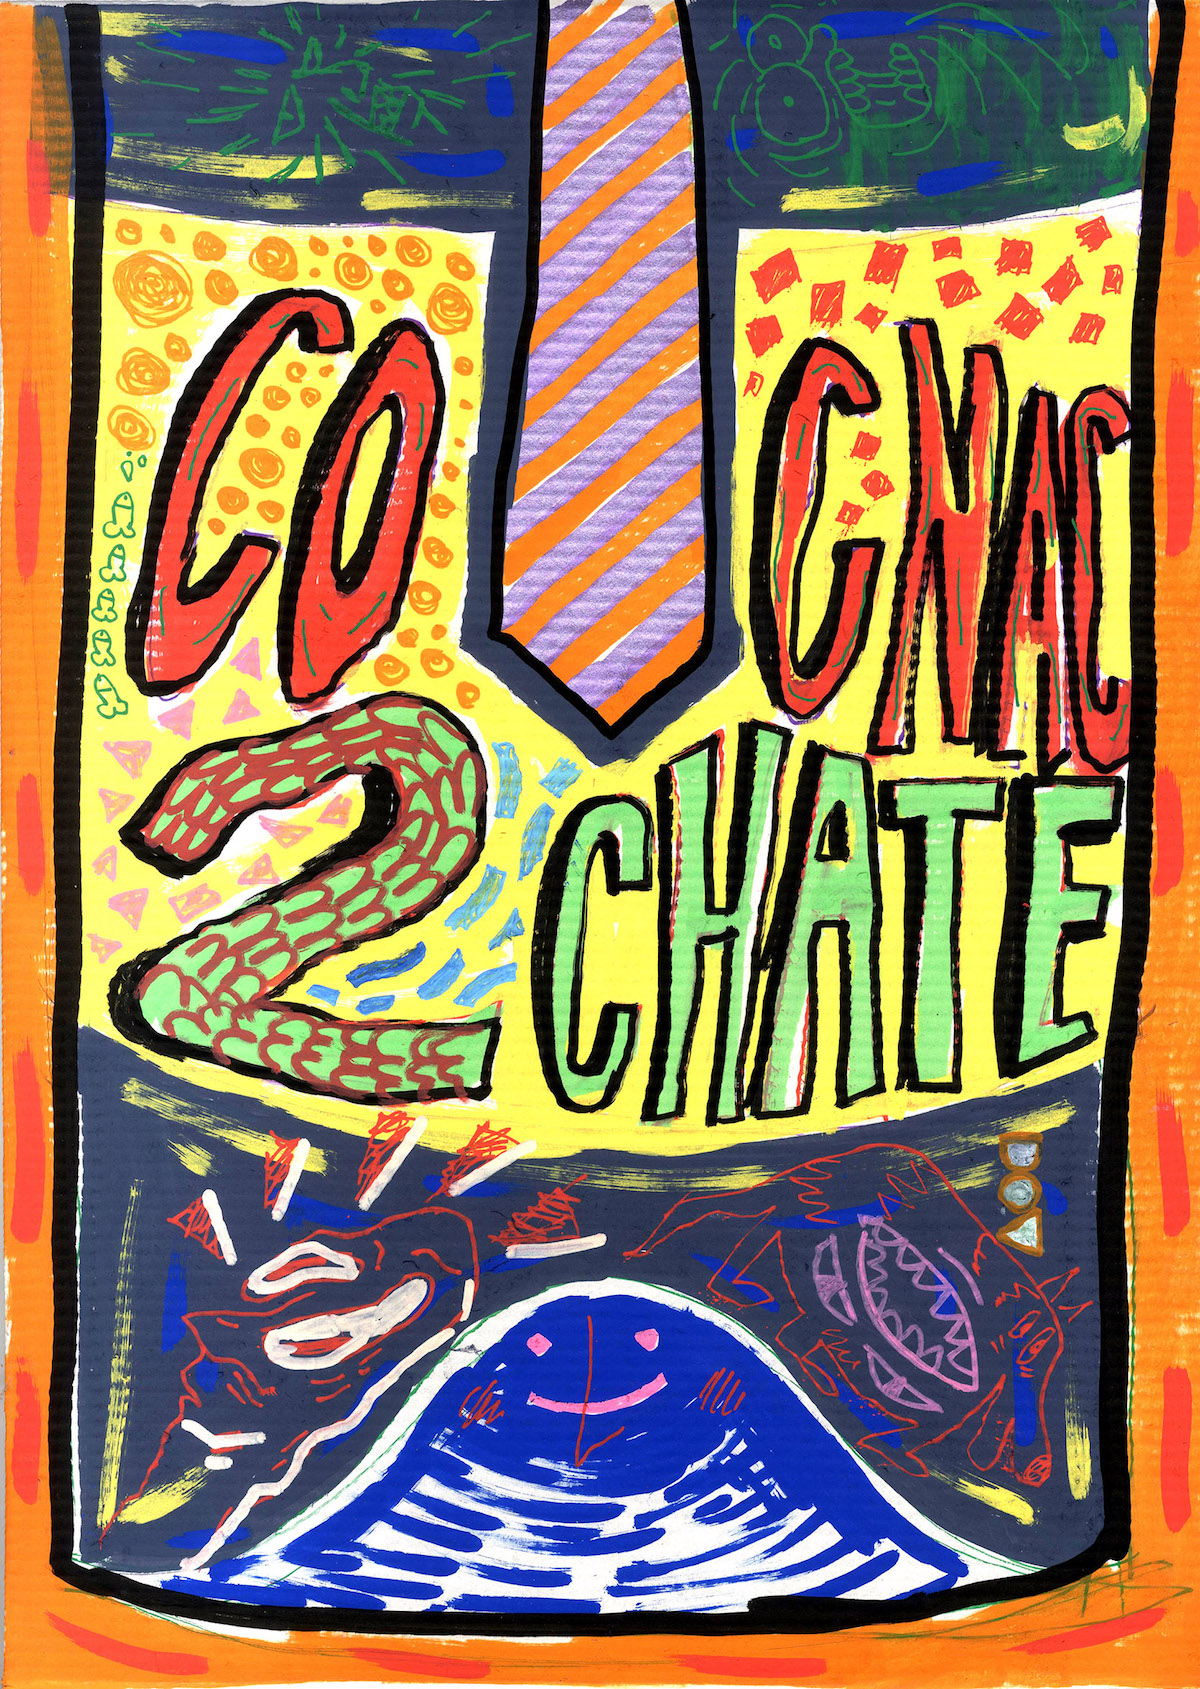 CO CNAC
2 CHATE